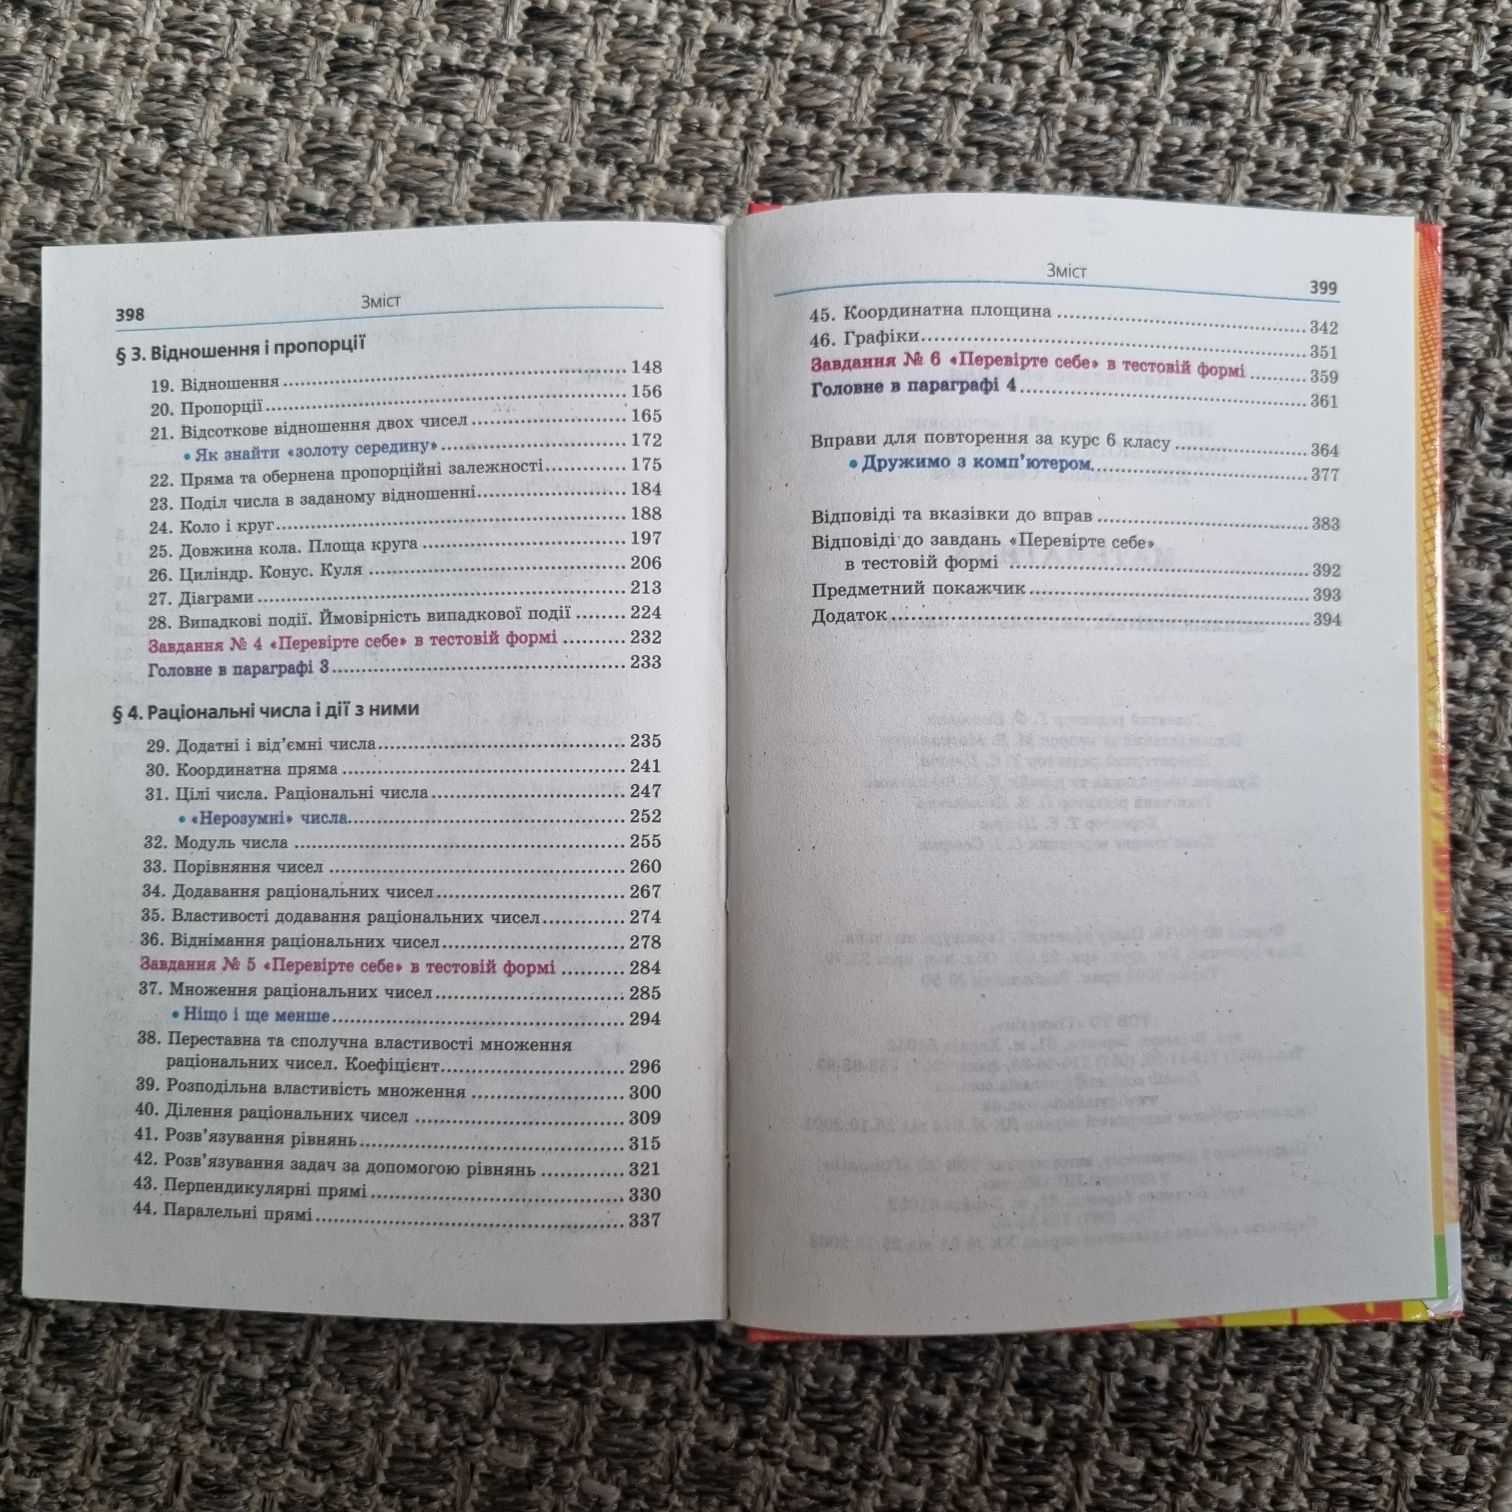 398 Зміст
§ 3. Відношення і пропорції
19. Відношення ........ 148
20. Пропорції ........ 156
21. Відсоткове відношення двох чисел ........ 165
• Як знайти «золоту середину» ........ 172
22. Пряма та обернена пропорційні залежності ........ 175
23. Поділ числа в заданому відношенні ........ 184
24. Коло і круг ........ 188
25. Довжина кола. Площа круга ........ 197
26. Циліндр. Конус. Куля ........ 206
27. Діаграми ........ 213
28. Випадкові події. Ймовірність випадкової події ........ 224
Завдання № 4 «Перевірте себе» в тестовій формі ........ 232
Головне в параграфі 3 ........ 233
§ 4. Раціональні числа і дії з ними
29. Додатні і від’ємні числа ........ 235
30. Координатна пряма ........ 241
31. Цілі числа. Раціональні числа ........ 247
• «Нерозумні» числа ........ 252
32. Модуль числа ........ 255
33. Порівняння чисел ........ 260
34. Додавання раціональних чисел ........ 267
35. Властивості додавання раціональних чисел ........ 274
36. Віднімання раціональних чисел ........ 278
Завдання № 5 «Перевірте себе» в тестовій формі ........ 284
37. Множення раціональних чисел ........ 285
• Ніщо і ще менше ........ 294
38. Переставна та сполучна властивості множення
раціональних чисел. Коефіцієнт ........ 296
39. Розподільна властивість множення ........ 300
40. Ділення раціональних чисел ........ 309
41. Розв’язування рівнянь ........ 315
42. Розв’язування задач за допомогою рівнянь ........ 321
43. Перпендикулярні прямі ........ 330
44. Паралельні прямі ........ 337
Зміст 399
45. Координатна площина ........ 342
46. Графіки ........ 351
Завдання № 6 «Перевірте себе» в тестовій формі ........ 359
Головне в параграфі 4 ........ 361
Вправи для повторення за курс 6 класу ........ 364
• Дружимо з комп’ютером ........ 377
Відповіді та вказівки до вправ ........ 383
Відповіді до завдань «Перевірте себе»
в тестовій формі ........ 392
Предметний покажчик ........ 393
Додаток ........ 394